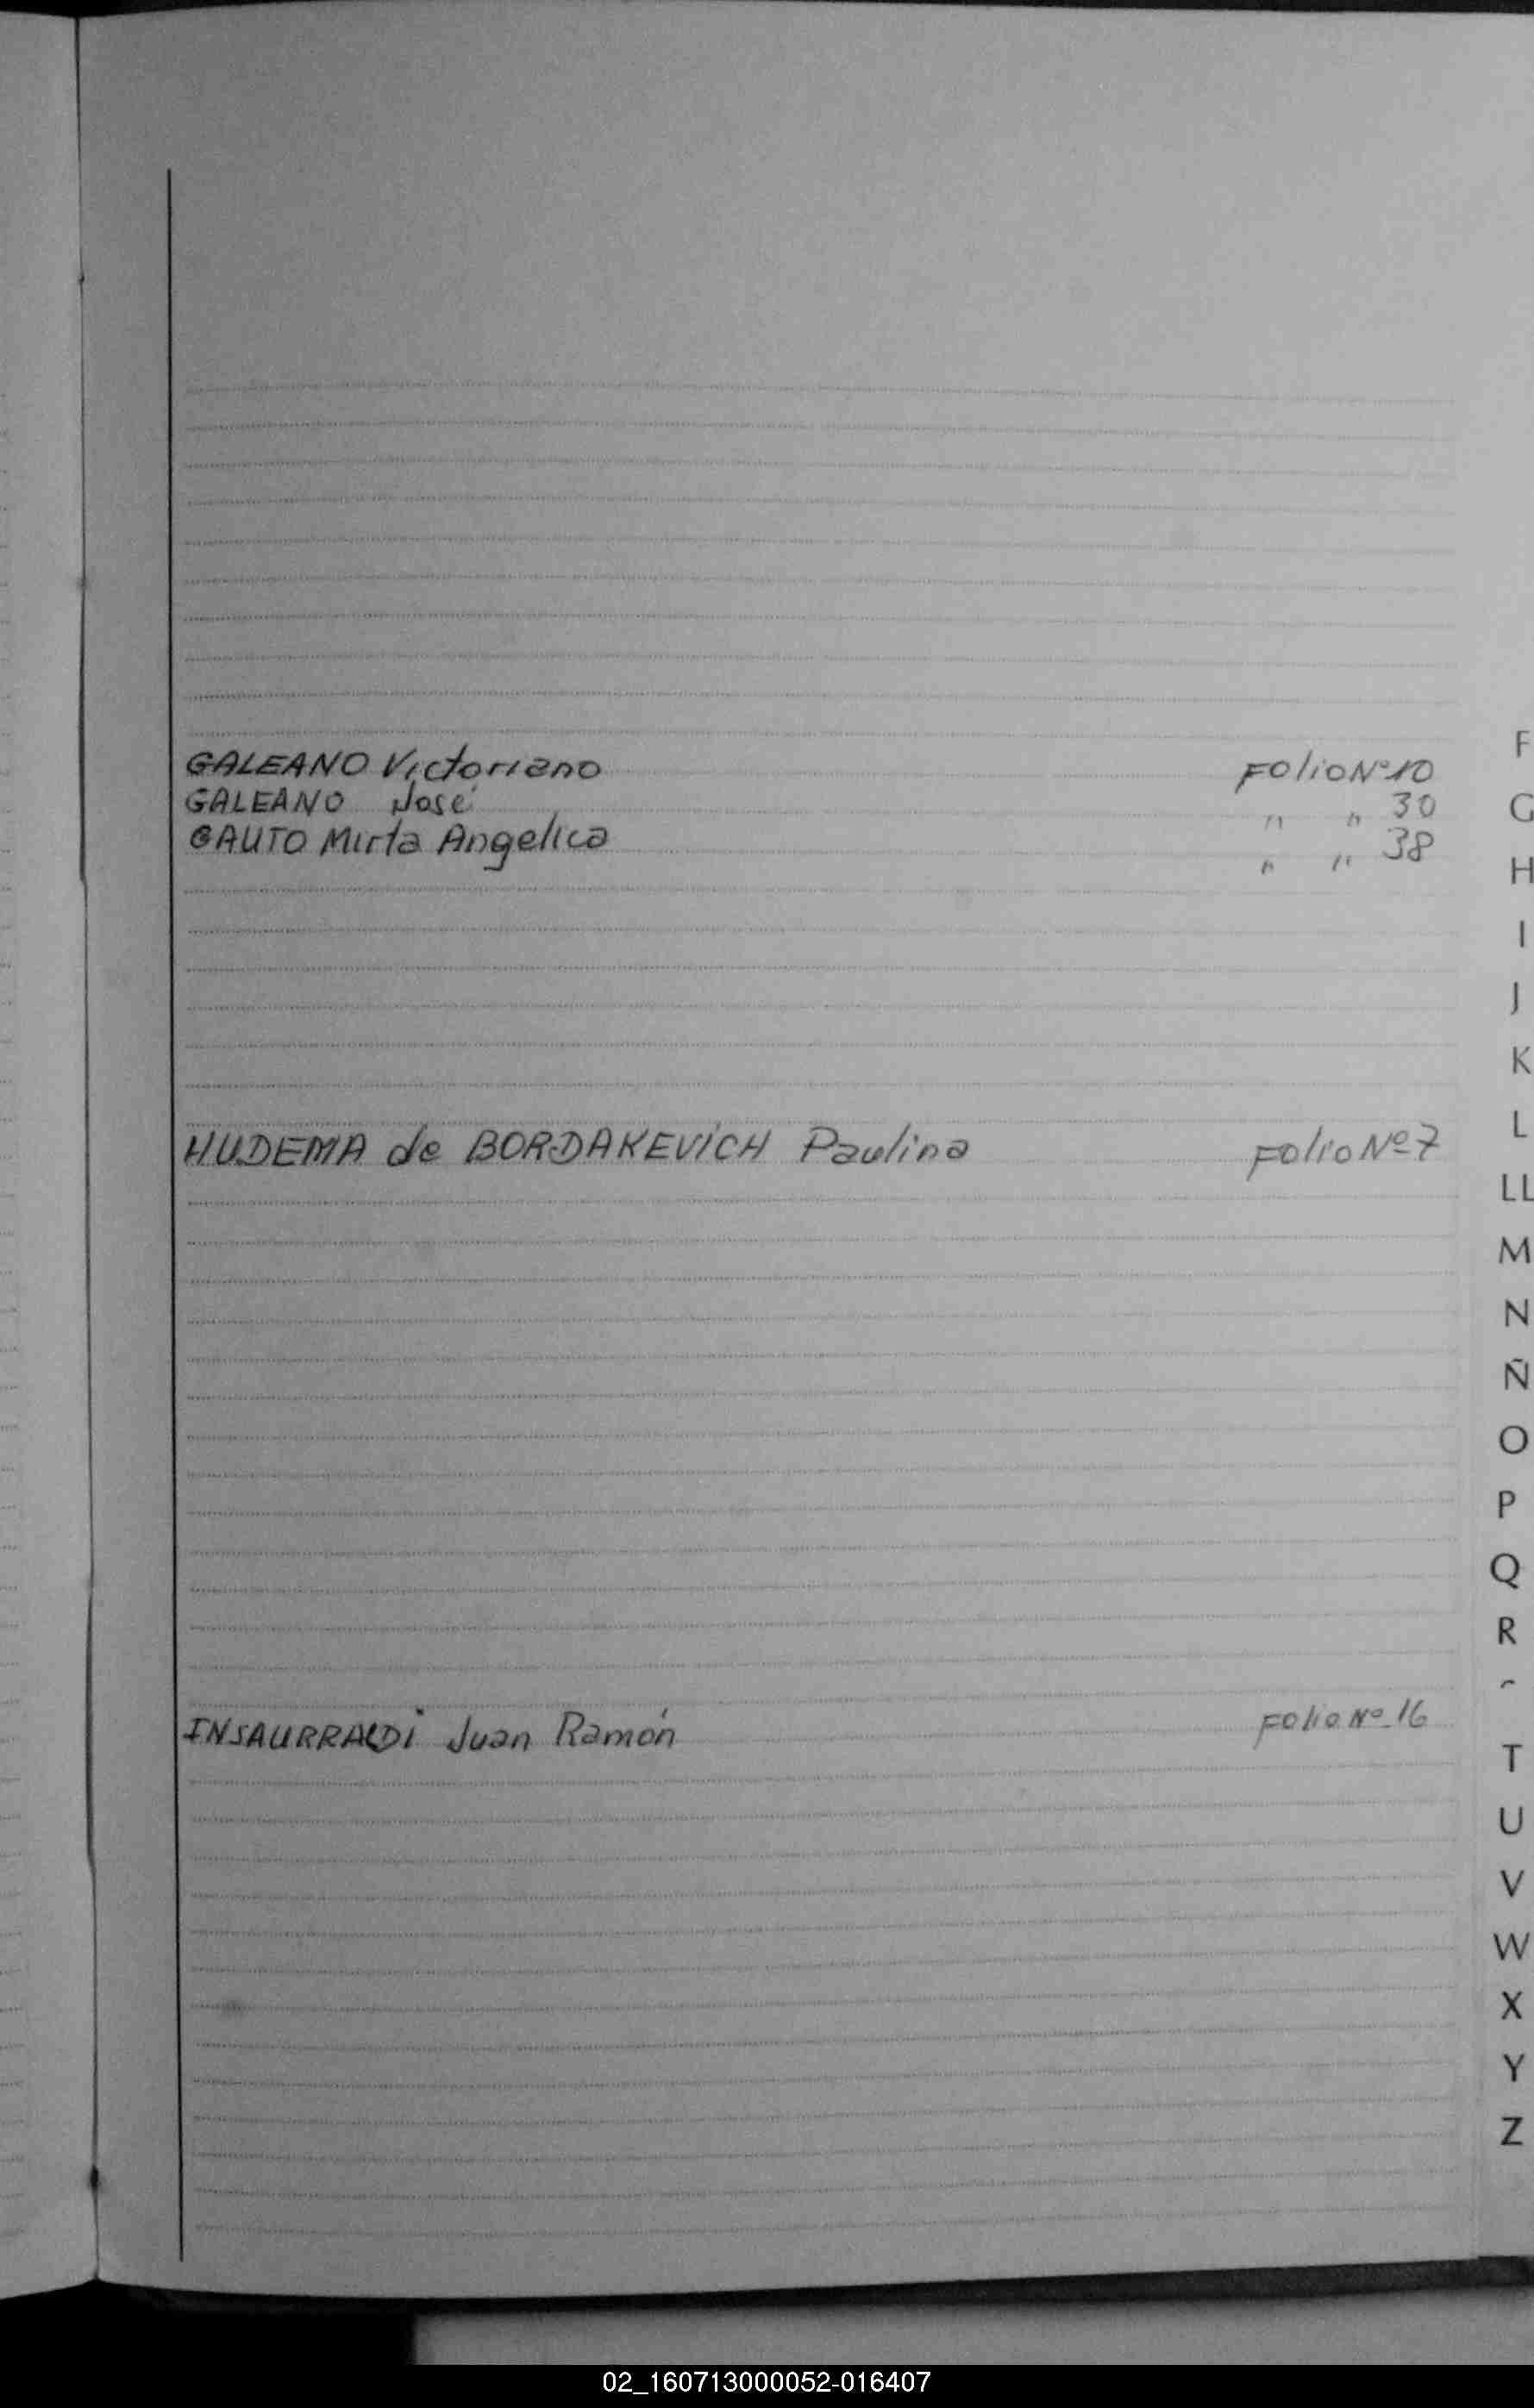 GALEANO Victoriano Folio Nº 10
GALEANO José " " 30
GAUTO Mirta Angelica " " 38
HUDEMA de BORDAKEVICH Paulina Folio Nº 7
INSAURRALDI Juan Ramón Folio Nº 16
F
G
H
I
J
K
L
LL
M
N
Ñ
O
P
Q
R
T
U
V
W
X
Y
Z
02_160713000052-016407